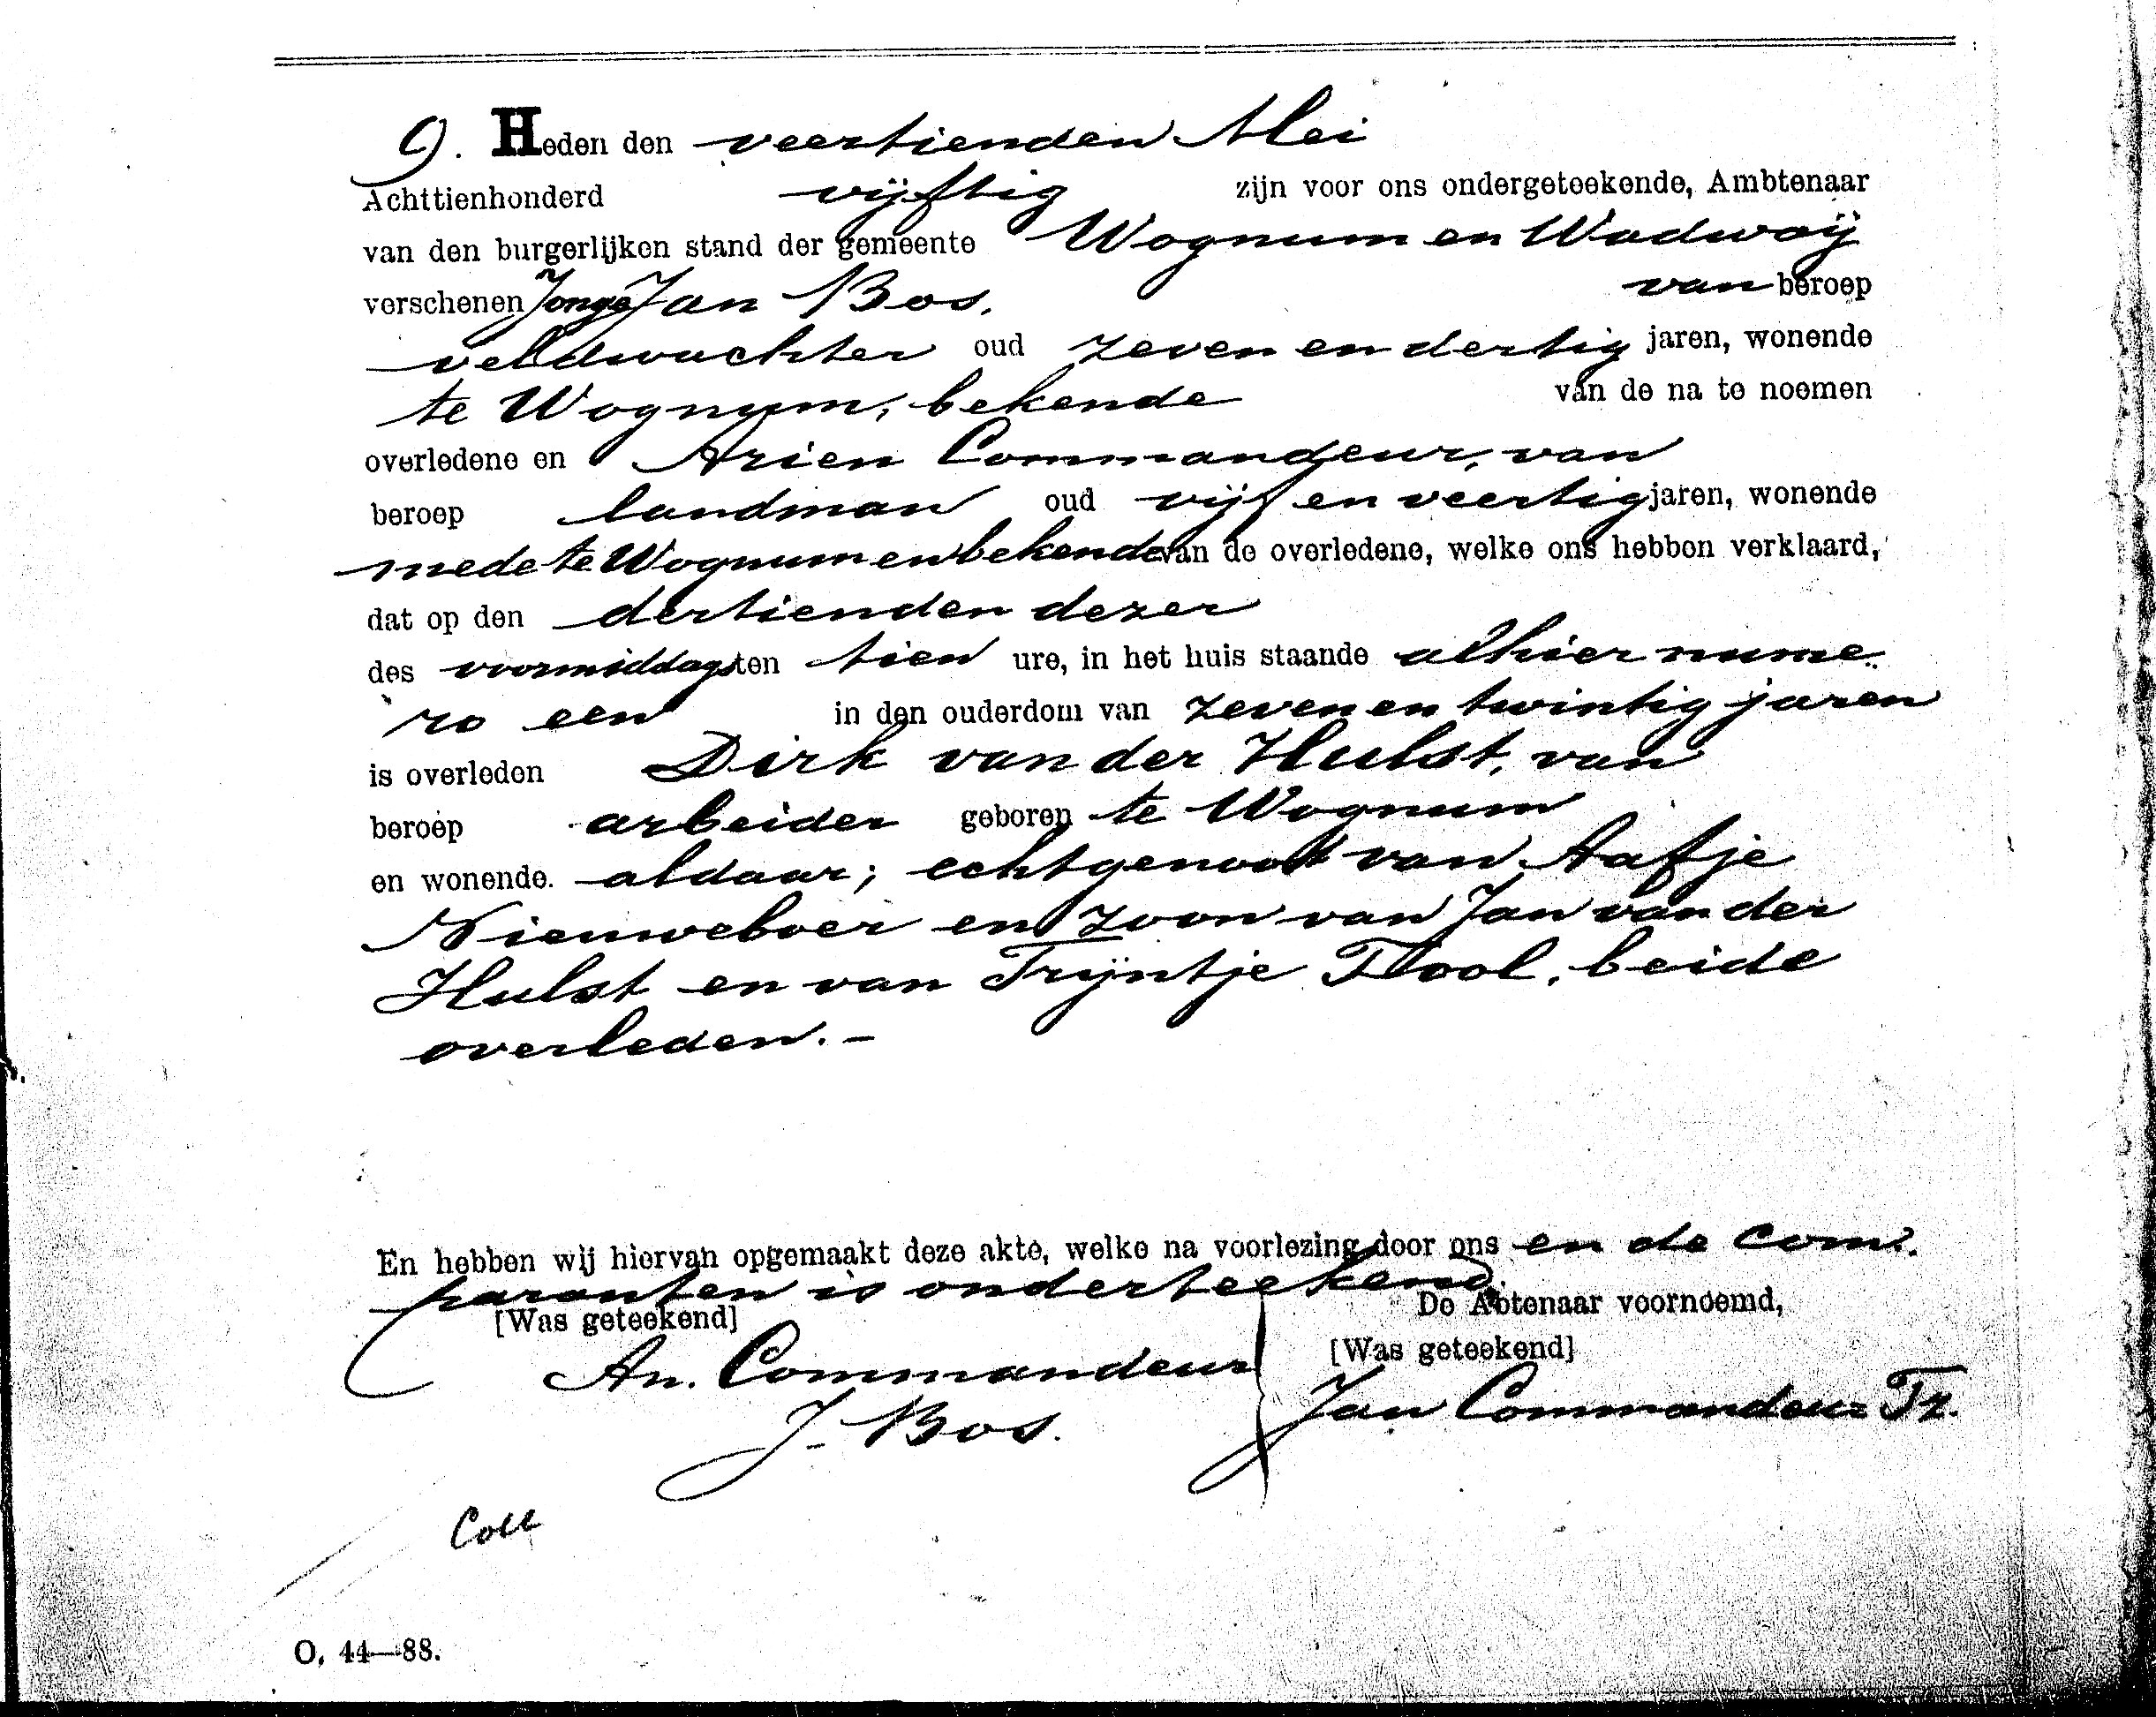 9. Heden den veertienden Mei
Achttienhonderd vijftig zijn voor ons ondergeteekende, Ambtenaar
van den burgerlijken stand der gemeente Wognum en Wadwaij
verschenen Jonge Jan Bos. van beroep
veldwachter oud zeven en dertig jaren, wonende
te Wognum, bekende van de na te noemen
overledene en Arien Commandeur, van
beroep landman oud vijf en veertig jaren, wonende
mede te Wognum en bekende van de overledene, welke ons hebben verklaard,
dat op den dertienden dezer
des voormiddags ten tien ure, in het huis staande alhier nume
ro een in den ouderdom van zeven en twintig jaren
is overleden Dirk van der Hulst, van
beroep arbeider geboren te Wognum
en wonende. aldaar; echtgenoot van Aafje
Nieuweboer en zoon van Jan van der
Hulst en van Trijntje Tool, beide
overleden. -
En hebben wij hiervan opgemaakt deze akte, welke na voorlezing door ons en de com-
paranten is onderteekend.
[Was geteekend] De Abtenaar voornoemd,
An. Commandeur [Was geteekend]
J. Bos. Jan Commandeur Tz.
Coll
O, 44—88.